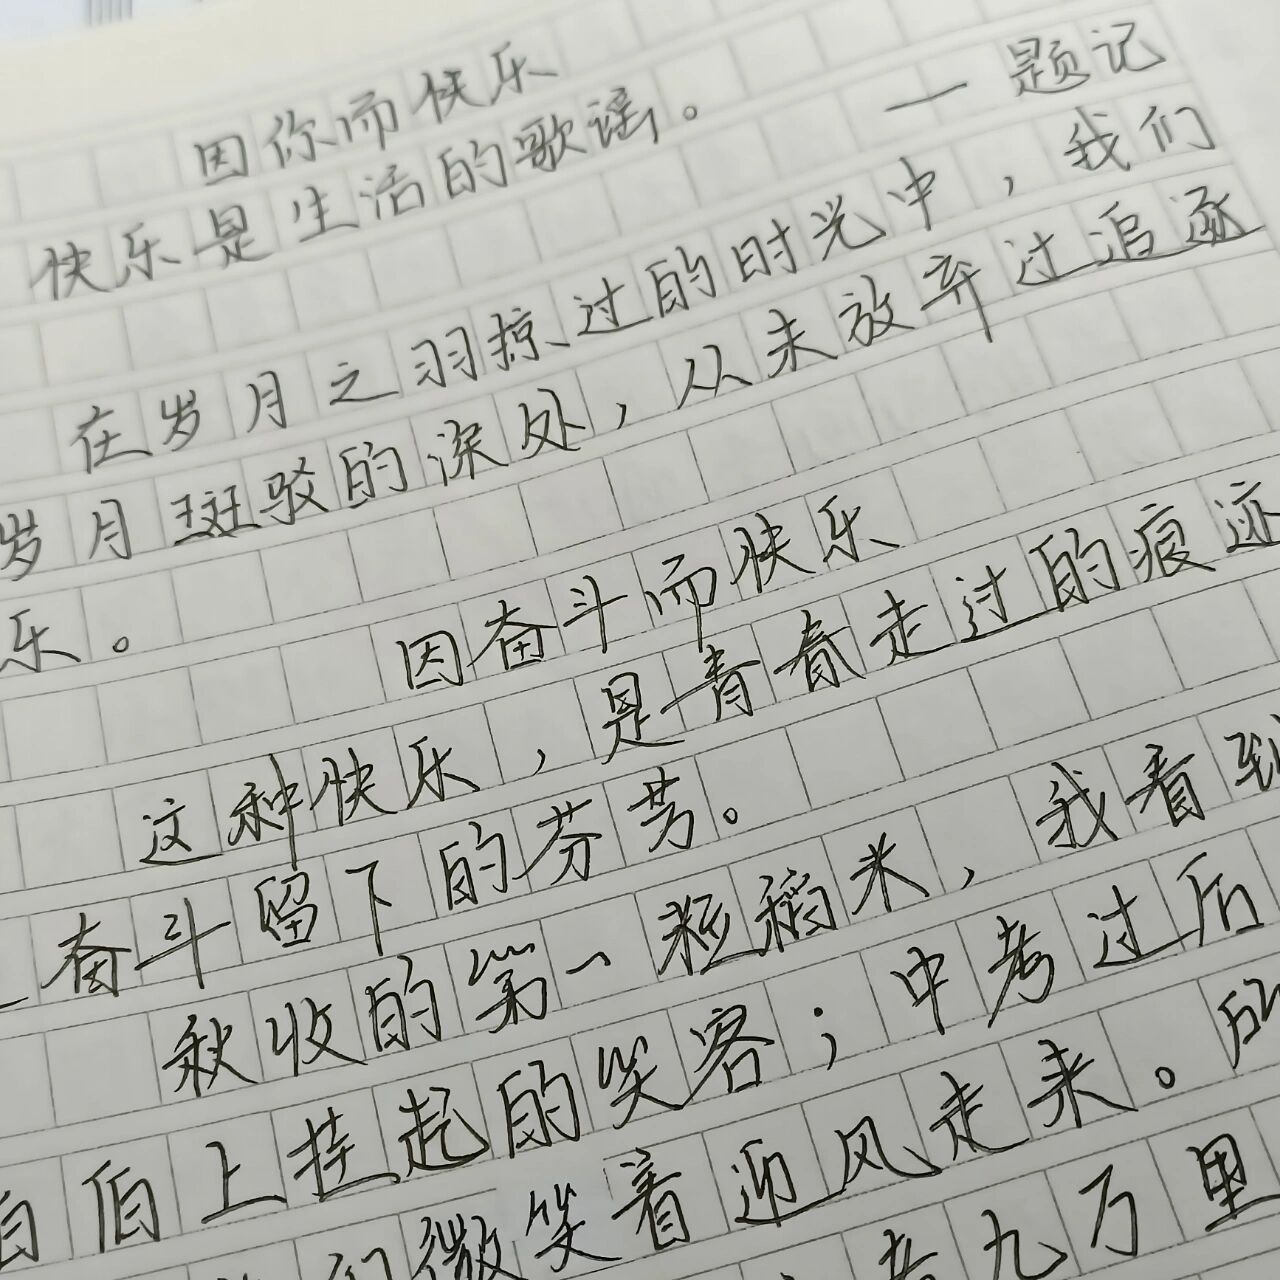 因你而快乐
快乐是生活的歌谣。 — 题记
在岁月之羽掠过的时光中，我们
岁月斑驳的深处，从未放弃过追逐
乐。
因奋斗而快乐
这种快乐，是青春走过的痕迹
奋斗留下的芬芳。
秋收的第一粒稻米，我看到
伯伯上挂起的笑容；中考过后
们微笑着迎风走来。所
九万里